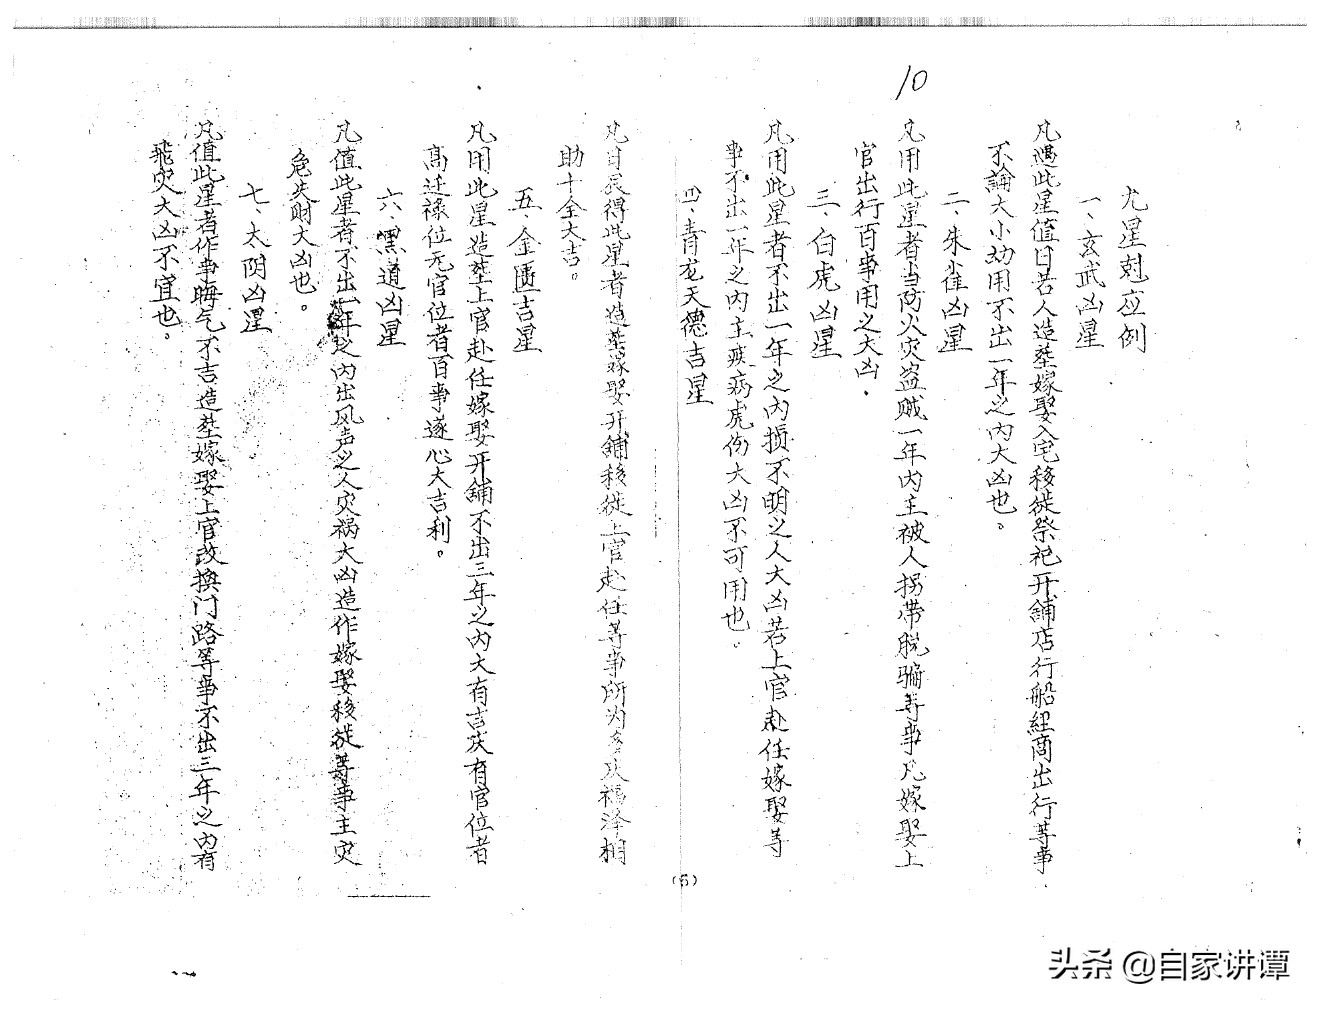 10
尤星尅应例
一、玄武凶星
凡遇此星值日若人造塟嫁娶入宅移徙祭祀开舖店行船经商出行等事
不論大小幼用不出一年之内大凶也。
二、朱雀凶星
凡用此星者当防火灾盗贼一年内主被人拐带脱骗等事凡嫁娶上
官出行百事用之大凶.
三、白虎凶星
凡用此星者不出一年之内损不明之人大凶若上官赴任嫁娶等
事不出一年之内主疾病虎伤大凶不可用也。
四、青龙天德吉星
凡日辰得此星者造塟嫁娶开舖移徙上官赴任等事所为吉庆福泽相
助十全大吉。
五、金匮吉星
凡用此星造塟上官赴任嫁娶开舖不出三年之内大有吉庆有官位者
高迁禄位无官位者百事遂心大吉利。
六、黑道凶星
凡值此星者不出一年之内出风声之人灾祸大凶造作嫁娶移徙等事主灾
危失财大凶也。
七、太阴凶星
凡值此星者作事晦气不吉造塟嫁娶上官改换门路等事不出三年之内有
飛灾大凶不宜也。
(5)
头条 @自家讲谭